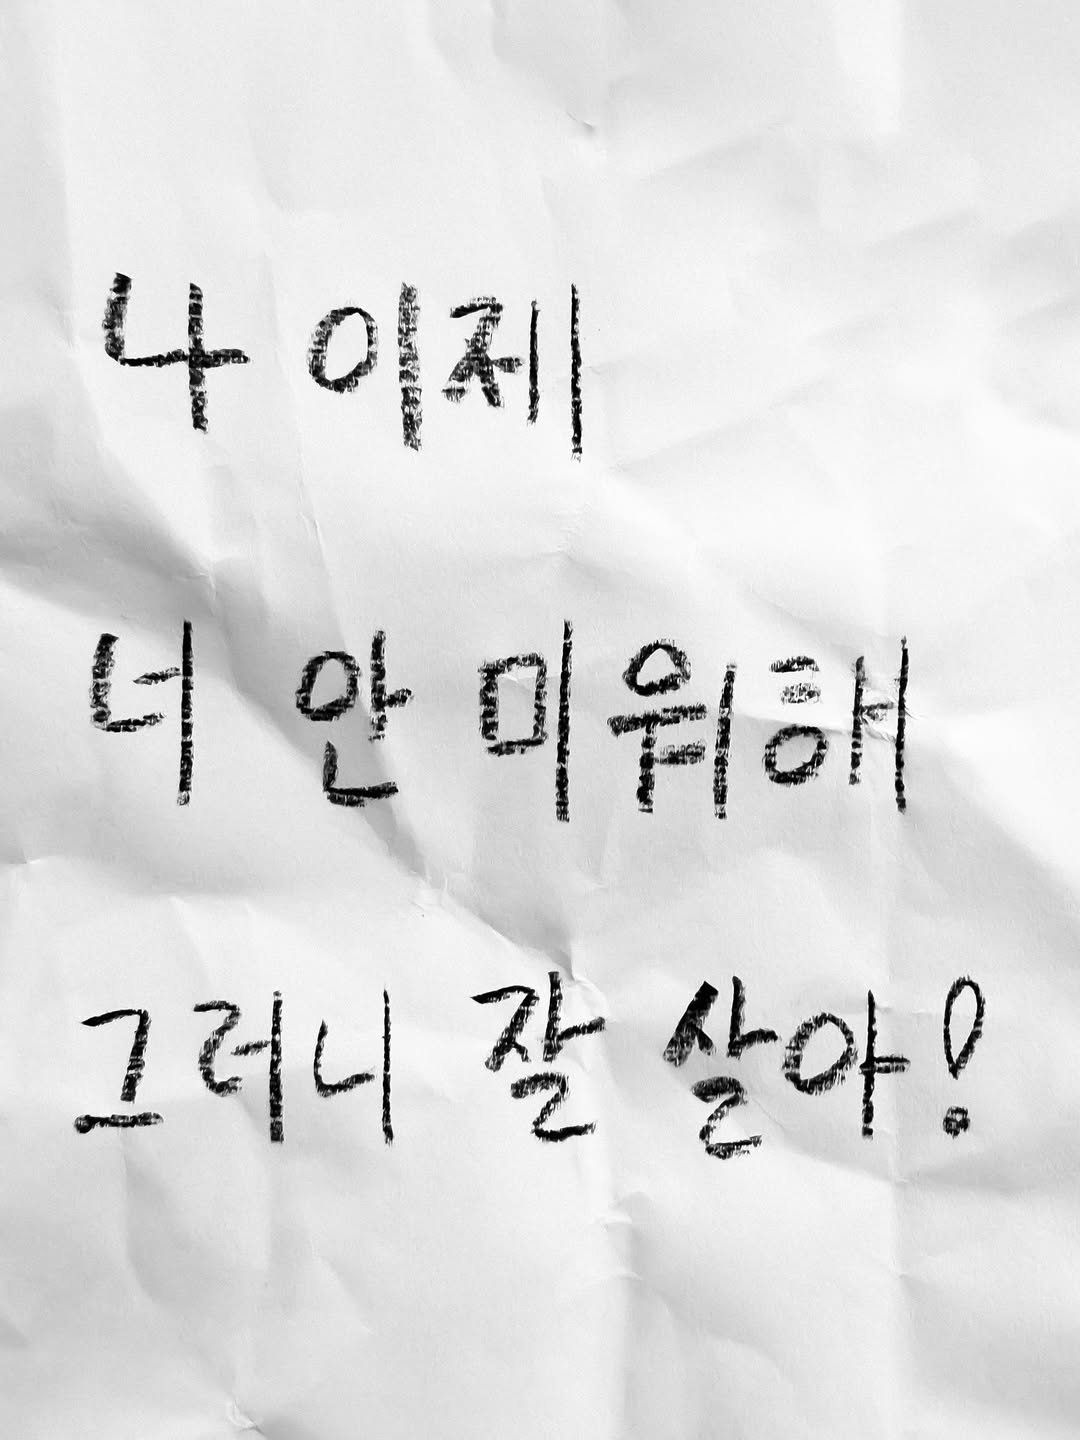 나 이제
너 안 미워해
그러니 잘 살아!